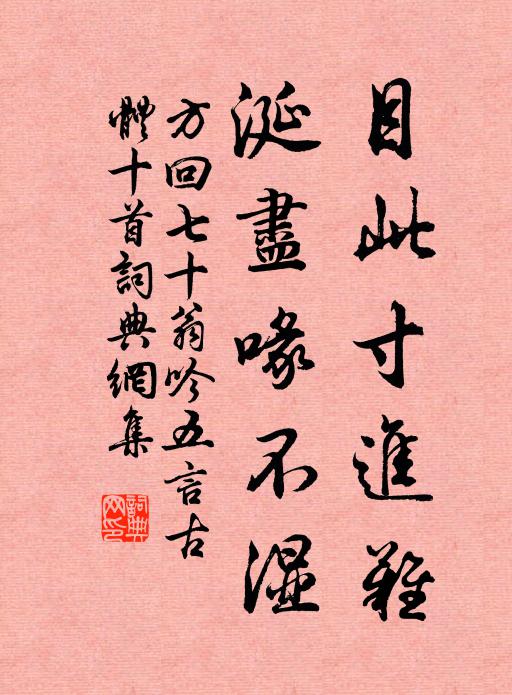 目此寸進難
涎盡喙不湿
方回七十翁吟五言古
體十首詞典網集
詞典
网印